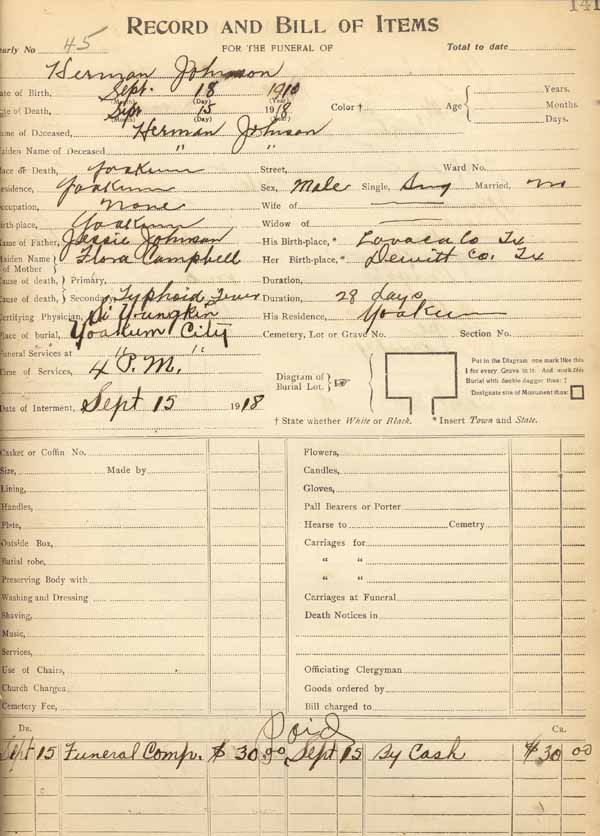 141
RECORD AND BILL OF ITEMS
early No 45 FOR THE FUNERAL OF Total to date
Herman Johnson
ate of Birth, Sept. 18 1910 Years.
(Month) (Day) (Year)
te of Death, Sept 15 1918 Color † Age Months.
(Month) (Day) (Year) Days.
ame of Deceased, Herman Johnson
aiden Name of Deceased " "
lace of Death, Yoakum Street, Ward No.
esidence, Yoakum Sex, Male Single, Sing Married, no
ccupation, None Wife of
irth-place, Yoakum Widow of
ame of Father, Jessie Johnson His Birth-place,* Lavaca Co Tx
aiden Name of Mother Flora Campbell Her Birth-place,* Dewitt Co. Tx
ause of death, Primary, Duration,
ause of death, Secondary, Typhoid Fever Duration, 28 days
ertifying Physician, Dr Youngkin His Residence, Yoakum
lace of burial, Yoakum City Cemetery, Lot or Grave No. Section No.
uneral Services at " "
ime of Services, 4 P.M. Diagram of Burial Lot.
Put in the Diagram one mark like this
I for every Grave in it. And mark this
Burial with double dagger thus: ‡
Designate site of Monument thus:
Date of Interment, Sept 15 1918
† State whether White or Black. * Insert Town and State.
Casket or Coffin No. Flowers,
Size, Made by Candles,
Lining, Gloves,
Handles, Pall Bearers or Porter
Plate, Hearse to Cemetry
Outside Box, Carriages for
Burial robe, " "
Preserving Body with " "
Washing and Dressing Carriages at Funeral
Shaving, Death Notices in
Music,
Services,
Use of Chairs, Officiating Clergyman
Church Charges Goods ordered by
Cemetery Fee, Bill charged to
DR. Paid CR.
Sept 15 Funeral Comp. $ 30 00 Sept 15 By Cash $ 30 00